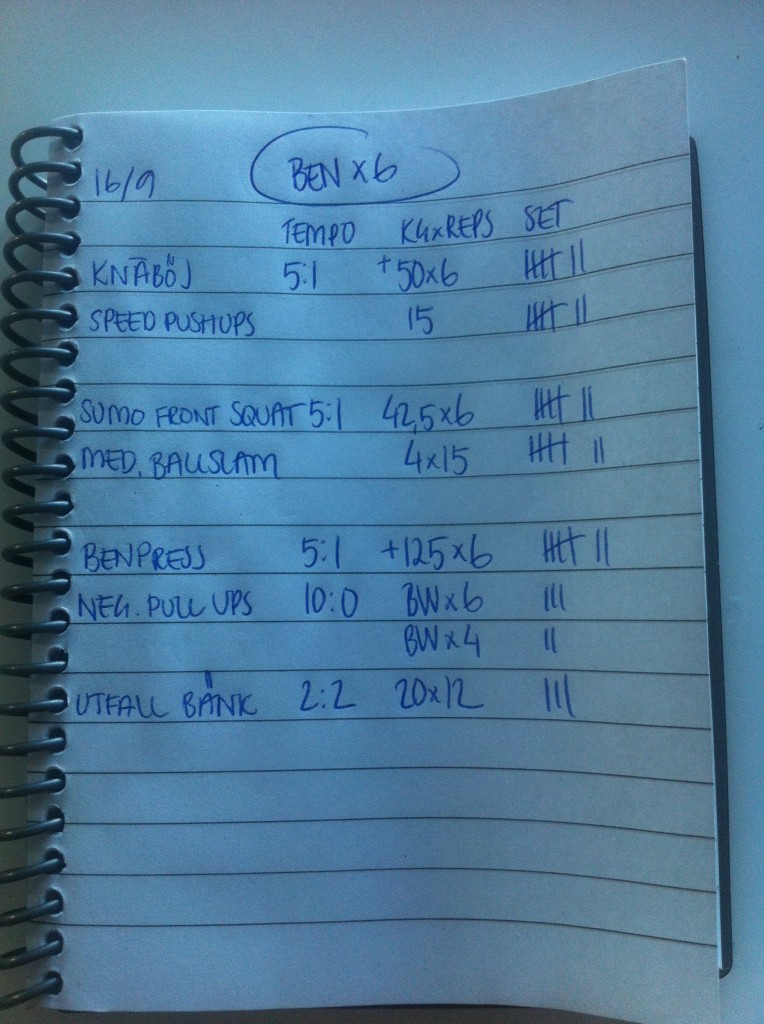 16/9 BEN x 6
TEMPO KGxREPS SET
KNÄBÖJ 5:1 +50x6 卌 ||
SPEED PUSHUPS 15 卌 ||
SUMO FRONT SQUAT 5:1 42,5x6 卌 ||
MED. BALLSLAM 4x15 卌 ||
BENPRESS 5:1 +125x6 卌 ||
NEG. PULL UPS 10:0 BWx6 |||
BWx4 ||
UTFALL BÄNK 2:2 20x12 |||